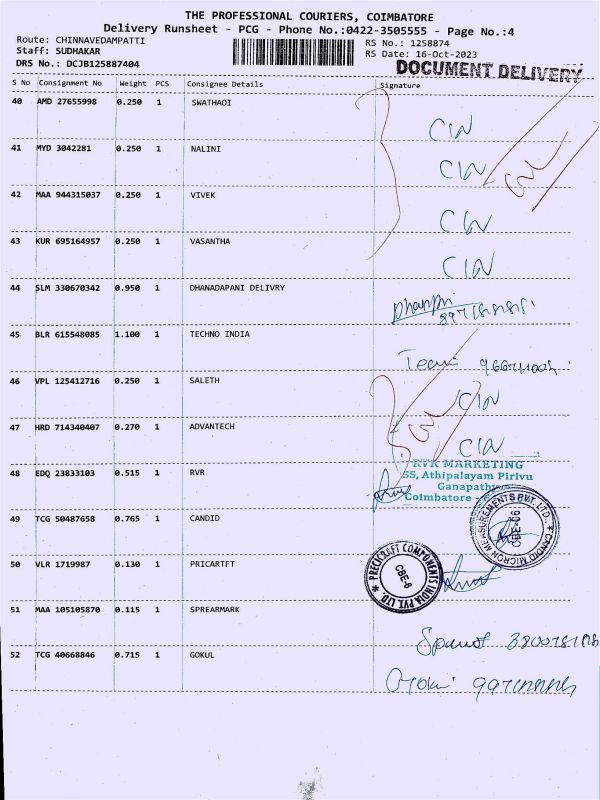 THE PROFESSIONAL COURIERS, COIMBATORE
Delivery Runsheet - PCG - Phone No.:0422-3505555 - Page No.:4
Route: CHINNAVEDAMPATTI
RS No.: 1258874
Staff: SUDHAKAR
RS Date: 16-Oct-2023
DRS No.: DCJB125887404
DOCUMENT DELIVERY
S No Consignment No Weight PCS Consignee Details Signature
40 AMD 27655998 0.250 1 SWATHAOI
CIN
41 MYD 3042281 0.250 1 NALINI
CIN
42 MAA 944315037 0.250 1 VIVEK
CIN
43 KUR 695164957 0.250 1 VASANTHA
CIN
44 SLM 330670342 0.950 1 DHANADAPANI DELIVRY
45 BLR 615548085 1.100 1 TECHNO INDIA
46 VPL 125412716 0.250 1 SALETH
CIN
47 HRD 714340407 0.270 1 ADVANTECH
CIN
48 EDQ 23833103 0.515 1 RVR
RVR MARKETING
55, Athipalayam Pirivu
Ganapathy
Coimbatore -
49 TCG 50487658 0.765 1 CANDID
CANDID MICRON MEASUREMENTS PVT. LTD.
CBE-06
50 VLR 1719987 0.130 1 PRICARTFT
PRECICRAFT COMPONENTS INDIA PVT. LTD.
CBE-6
51 MAA 105105870 0.115 1 SPREARMARK
52 TCG 40668846 0.715 1 GOKUL